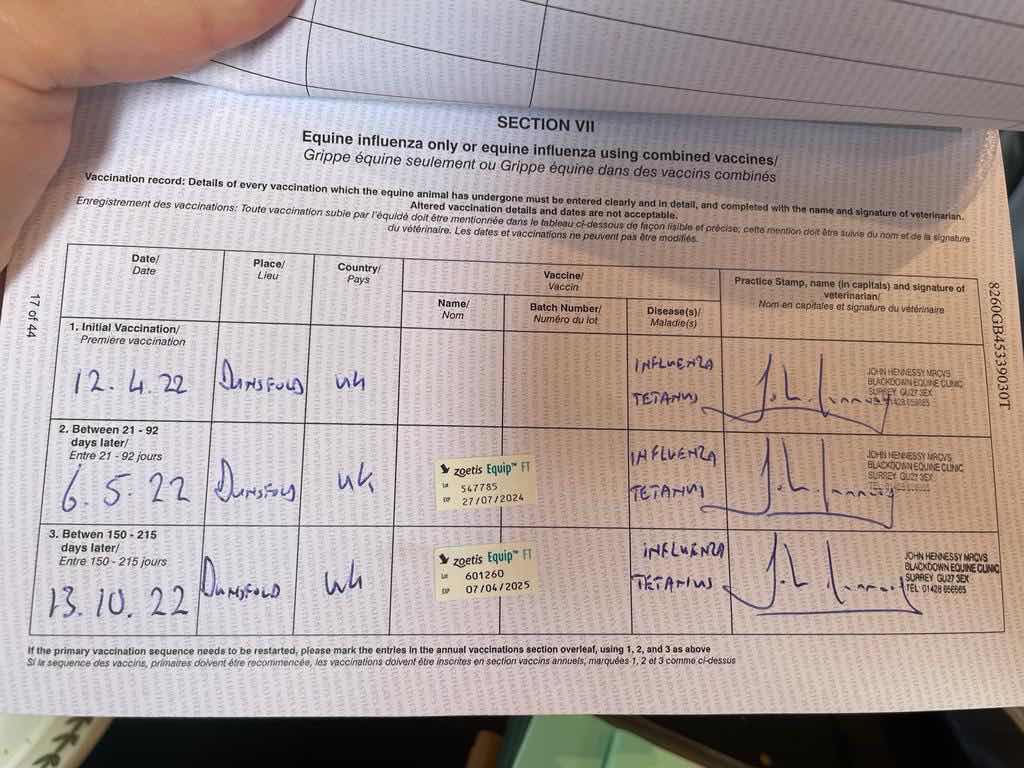 SECTION VII
Equine influenza only or equine influenza using combined vaccines/
Grippe équine seulement ou Grippe équine dans des vaccins combinés
Vaccination record: Details of every vaccination which the equine animal has undergone must be entered clearly and in detail, and completed with the name and signature of veterinarian.
Altered vaccination details and dates are not acceptable.
Enregistrement des vaccinations: Toute vaccination subie par l'équidé doit être mentionnée dans le tableau ci-dessous de façon lisible et précise; cette mention doit être suivie du nom et de la signature
du vétérinaire. Les dates et vaccinations ne peuvent pas être modifiés.
Date/
Date
Place/
Lieu
Country/
Pays
Vaccine/
Vaccin
Name/
Nom
Batch Number/
Numéro du lot
Disease(s)/
Maladie(s)
Practice Stamp, name (in capitals) and signature of
veterinarian/
Nom en capitales et signature du vétérinaire
1. Initial Vaccination/
Première vaccination
12.4.22
DUNSFOLD
UK
INFLUENZA
TETANUS
JOHN HENNESSY MRCVS
BLACKDOWN EQUINE CLINIC
SURREY GU27 3EX
01428 656665
2. Between 21 - 92
days later/
Entre 21 - 92 jours
6.5.22
DUNSFOLD
UK
zoetis Equip™ FT
Lot 547785
EXP 27/07/2024
INFLUENZA
TETANUS
JOHN HENNESSY MRCVS
BLACKDOWN EQUINE CLINIC
SURREY GU27 3EX
3. Betwen 150 - 215
days later/
Entre 150 - 215 jours
13.10.22
DUNSFOLD
UK
zoetis Equip™ FT
Lot 601260
EXP 07/04/2025
INFLUENZA
TETANUS
JOHN HENNESSY MRCVS
BLACKDOWN EQUINE CLINIC
SURREY GU27 3EX
TEL: 01428 656665
If the primary vaccination sequence needs to be restarted, please mark the entries in the annual vaccinations section overleaf, using 1, 2, and 3 as above
Si la sequence des vaccins, primaires doivent être recommencée, les vaccinations doivent être inscrites en section vaccins annuels, marquées 1, 2 et 3 comme ci-dessus
17 of 44
8260GB45339030T